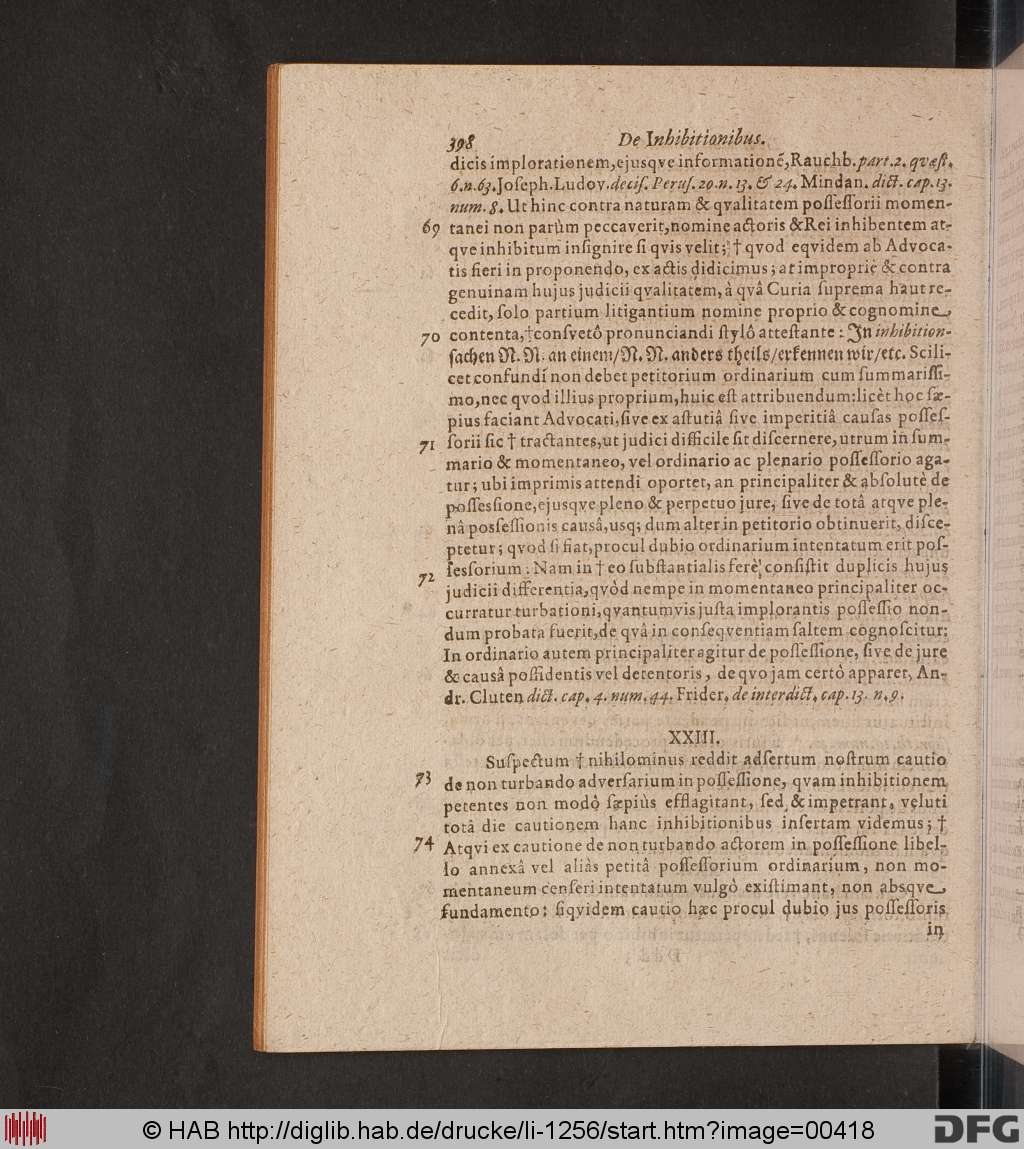 398 De Inhibitionibus.
dicis implorationem, ejusqve informationẽ, Rauchb. part. 2. qvæſt.
6. n. 63. Joſeph. Ludov. deciſ. Peruſ. 20. n. 13. & 24. Mindan. dict. cap. 13.
num. 8. Ut hinc contra naturam & qvalitatem poſſeſſorii momen-
69 tanei non parùm peccaverit, nomine actoris & Rei inhibentem at-
qve inhibitum inſignire ſi qvis velit; † qvod eqvidem ab Advoca-
tis fieri in proponendo, ex actis didicimus; at impropriè & contra
genuinam hujus judicii qvalitatem, à qvâ Curia ſuprema haut re-
cedit, ſolo partium litigantium nomine proprio & cognomine,
70 contenta, † conſvetô pronunciandi ſtylô atteſtante: In inhibition-
ſachen N. N. an einem/ N. N. anders theils/ erkennen wir/ etc. Scili-
cet confundi non debet petitorium ordinarium cum ſummariſſi-
mo, nec qvod illius proprium, huic eſt attribuendum: licèt hoc ſæ-
pius faciant Advocati, ſive ex aſtutiâ ſive imperitiâ cauſas poſſeſ-
71 ſorii ſic † tractantes, ut judici difficile ſit diſcernere, utrum in ſum-
mario & momentaneo, vel ordinario ac plenario poſſeſſorio aga-
tur; ubi imprimis attendi oportet, an principaliter & abſolutè de
poſſesſione, ejusqve pleno & perpetuo jure, ſive de totâ atqve ple-
nâ posſeſſionis causâ, usq; dum alter in petitorio obtinuerit, diſce-
ptetur; qvod ſi fiat, procul dubio ordinarium intentatum erit poſ-
72 ſesſorium: Nam in † eo ſubſtantialis ferè conſiſtit duplicis hujus
judicii differentia, qvòd nempe in momentaneo principaliter oc-
curratur turbationi, qvantumvis juſta implorantis poſſeſſio non-
dum probata fuerit, de qvâ in conſeqventiam ſaltem cognoſcitur;
In ordinario autem principaliter agitur de poſſeſſione, ſive de jure
& causâ poſſidentis vel detentoris, de qvo jam certò apparet, An-
dr. Cluten dict. cap. 4. num. 44. Frider. de interdict. cap. 13. n. 9.
XXIII.
Suſpectum † nihilominus reddit adſertum noſtrum cautio
73 de non turbando adverſarium in poſſeſſione, qvam inhibitionem
petentes non modò ſæpiùs efflagitant, ſed & impetrant, veluti
totâ die cautionem hanc inhibitionibus inſertam videmus; †
74 Atqvi ex cautione de non turbando actorem in poſſeſſione libel-
lo annexâ vel aliàs petitâ poſſeſſorium ordinarium, non mo-
mentaneum cenſeri intentatum vulgò exiſtimant, non absqve
fundamento: ſiqvidem cautio hæc procul dubio jus poſſeſſoris
in
© HAB http://diglib.hab.de/drucke/li-1256/start.htm?image=00418
DFG